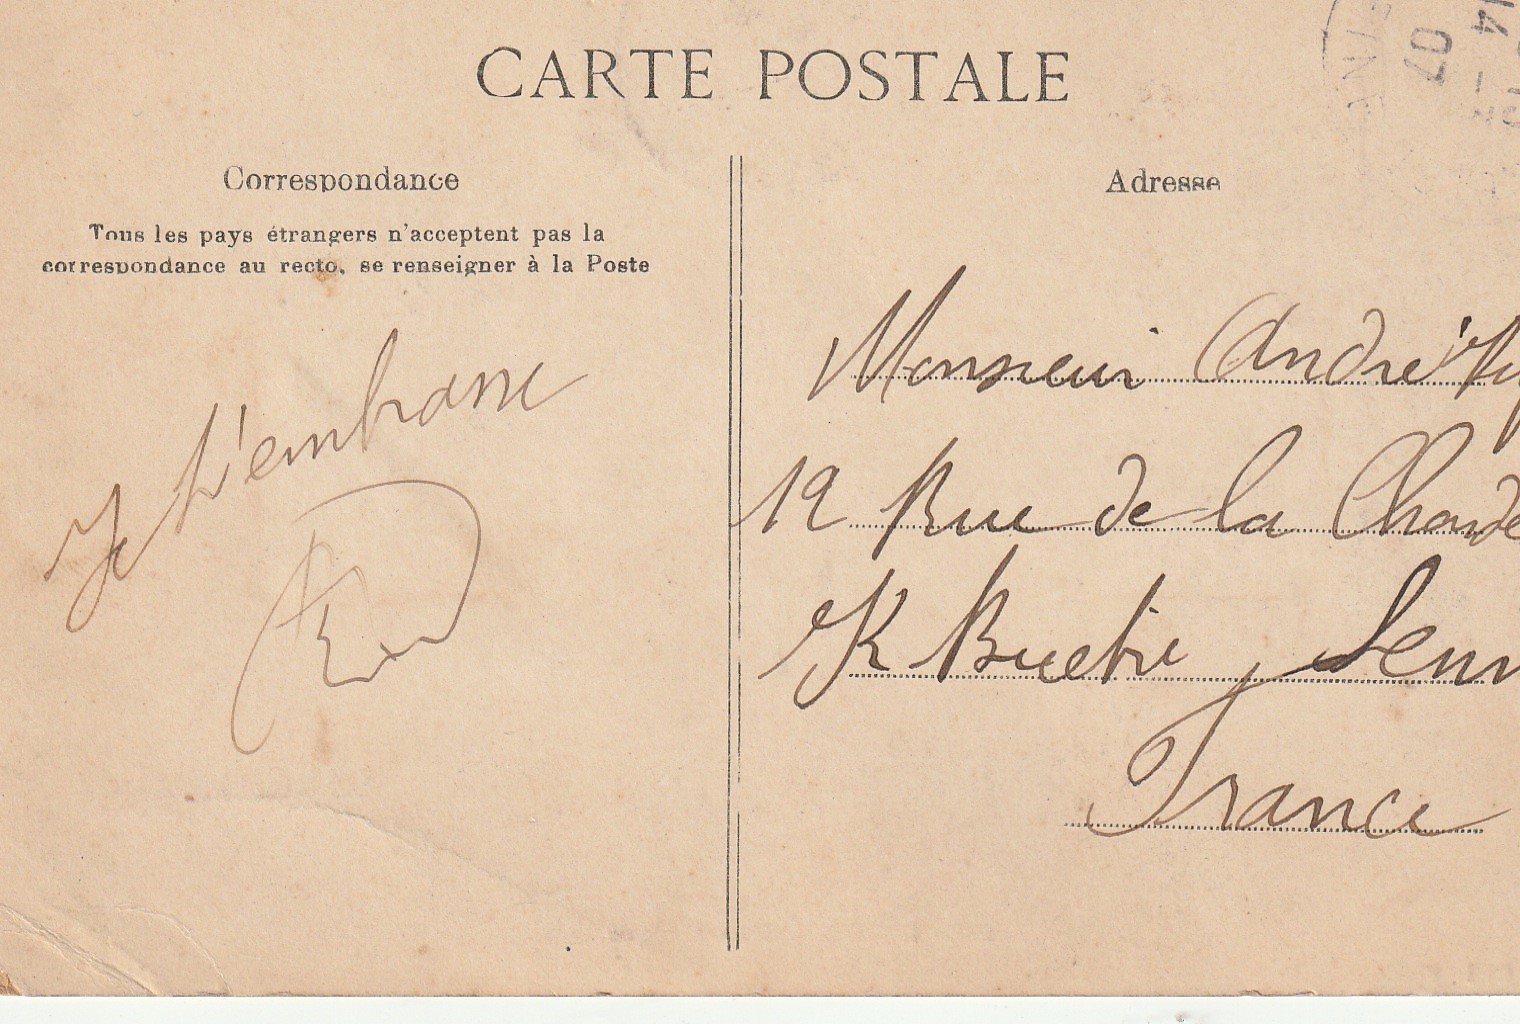 CARTE POSTALE
Correspondance
Tous les pays étrangers n'acceptent pas la
correspondance au recto, se renseigner à la Poste
Je t'embrasse
Adresse
Monsieur André
12 Rue de la
K Bicêtre Seine
France
14
07